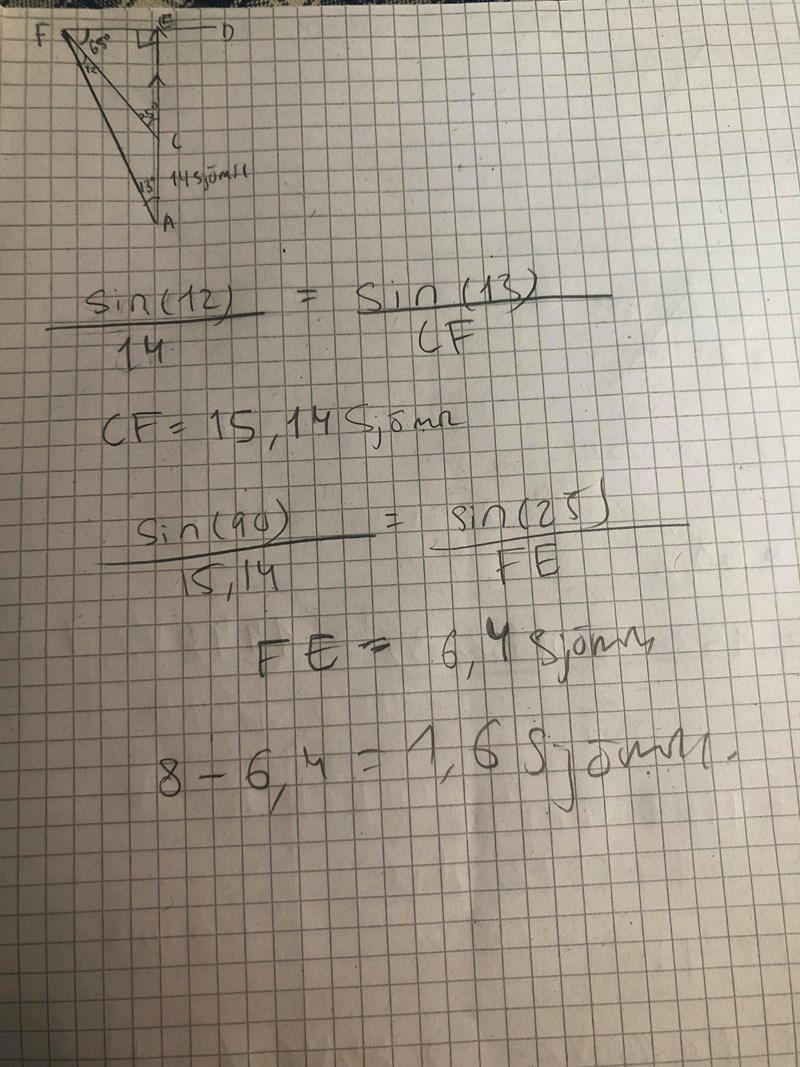 F E D
65°
12°
25°
C
14 sjömil
13°
A
sin(12) = sin(13)
14 CF
CF = 15,14 Sjömil
sin(90) = sin(25)
15,14 FE
FE = 6,4 sjömil
8 - 6,4 = 1,6 Sjömil.